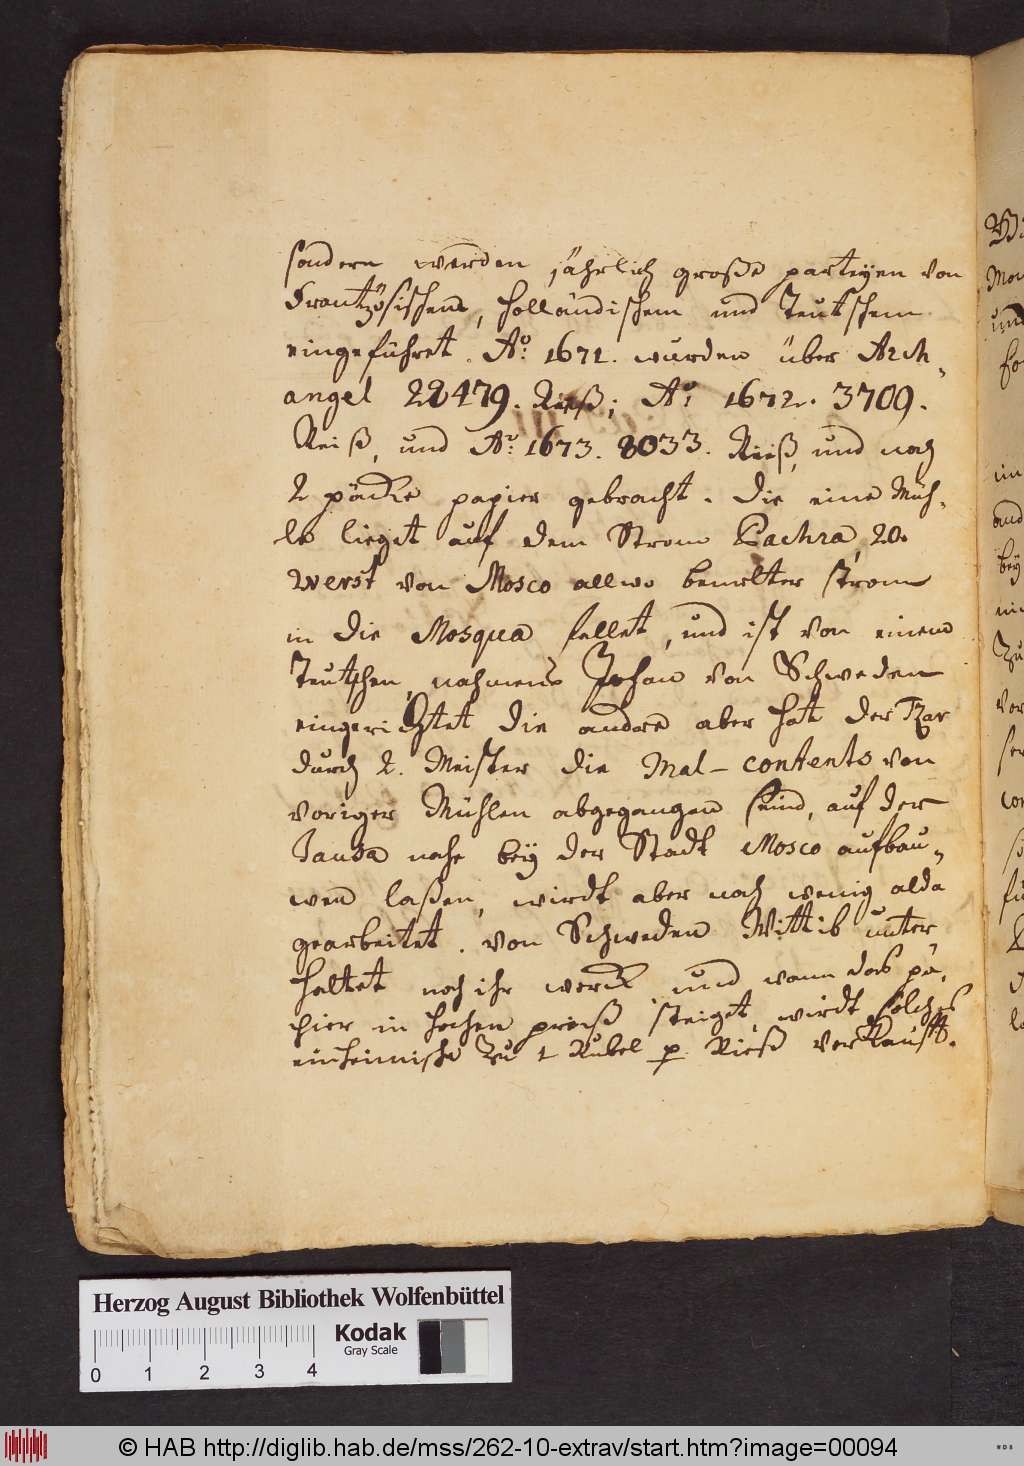 sondern werden jährlich große parteyen von
Frantzösischen, Holländischem und Teutschem
eingeführet. Aº: 1671. wurden über Arch-
angel 28479. Rieß; Aº: 1672. 3709.
Reiß, und Aº: 1673. 8033. Rieß, und noch
2 päcke papier gebracht. Die eine Müh-
le lieget auf dem Strom Pachra, 20.
Werst von Mosco allwo bemelter strom
in die Mosqua fellet, und ist von einem
Teutschen, nahmens Johan von Schweden
eingerichtet die andre aber hat der Tzar
durch 2. Meister die Mal-contents von
voriger Mühlen abgegangen seind, auf der
Jausa nahe bey der Stadt Mosco aufbau-
wen laßen, wirdt aber noch wenig alda
gearbeitet. von Schweden Wittib unter
haltet noch ihr werck, und wann das pa-
pier in hohen preiß steiget, wirdt solches
einheimische zu 1 Rubel p. Rieß verkaufft.
Mon
und
fo
im
and
bey
Zu
ver
ser
con
fü
Herzog August Bibliothek Wolfenbüttel
Kodak
Gray Scale
0 1 2 3 4
© HAB http://diglib.hab.de/mss/262-10-extrav/start.htm?image=00094